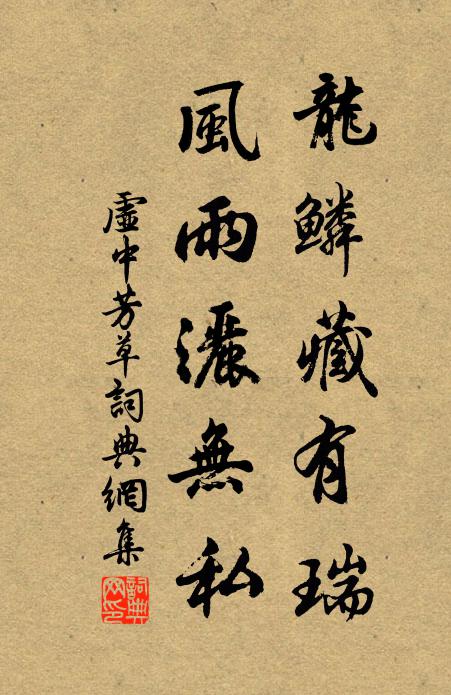 龍鱗藏有瑞
風雨灑無私
虛中芳草詞典網集
詞典网印